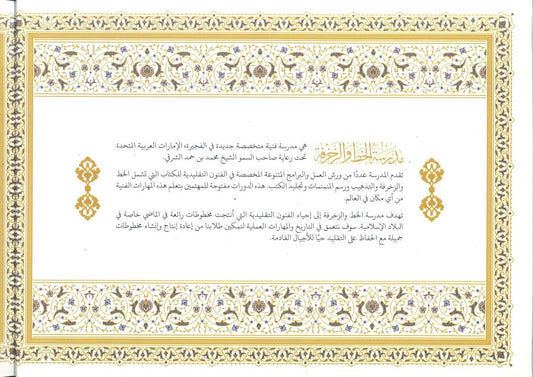 مدرسة الخط والزخرفة
هي مدرسة فنية متخصصة جديدة في الفجيرة، الإمارات العربية المتحدة
تحت رعاية صاحب السمو الشيخ محمد بن حمد الشرقي.
تقدم المدرسة عددًا من ورش العمل والبرامج المتنوعة المخصصة في الفنون التقليدية للكتاب التي تشمل الخط
والزخرفة والتذهيب ورسم المنمنمات وتجليد الكتب. هذه الدورات مفتوحة للمهتمين بتعلم هذه المهارات الفنية
من أي مكان في العالم.
تهدف مدرسة الخط والزخرفة إلى إحياء الفنون التقليدية التي أنتجت مخطوطات رائعة في الماضي خاصة في
البلاد الإسلامية. سوف نتعمق في التاريخ والمهارات العملية لتمكين طلابنا من إعادة إنتاج وإنشاء مخطوطات
جميلة مع الحفاظ على التقليد حيًا للأجيال القادمة.